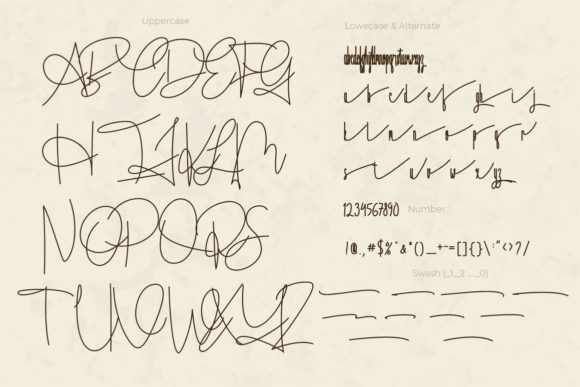 Uppercase
ABCDEFG
HIJKLM
NOPQRS
TUVWXYZ
Lowecase & Alternate
abcdefghijklmnopqrstuvwxyz
a b c d e f g h i j
k l m n o p q r
s t u v w x y z
1234567890 Number
!@.,#$%^&*()_+-=[]{}\:"<>?/
Swash (_1,_2 ... _0)